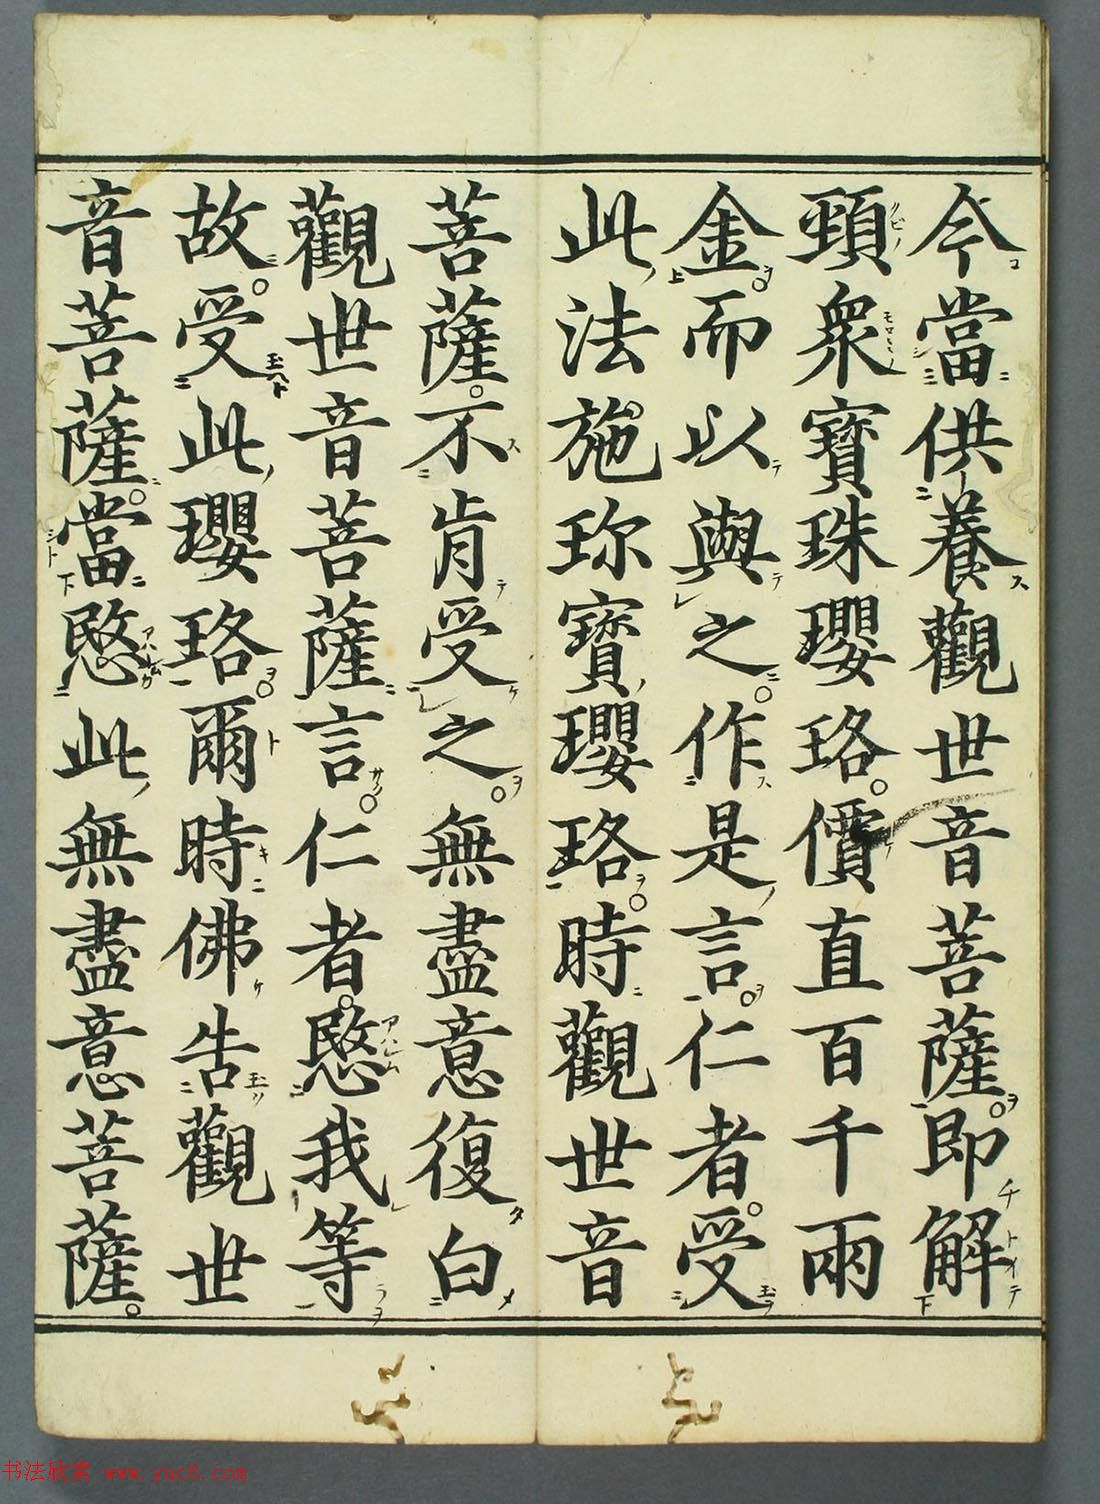 今當供養觀世音菩薩即解
頸衆寶珠瓔珞價直百千兩
金而以與之作是言仁者受
此法施珎寶瓔珞時觀世音
菩薩不肯受之無盡意復白
觀世音菩薩言仁者愍我等
故受此瓔珞爾時佛告觀世
音菩薩當愍此無盡意菩薩
书法欣赏 www.yac8.com